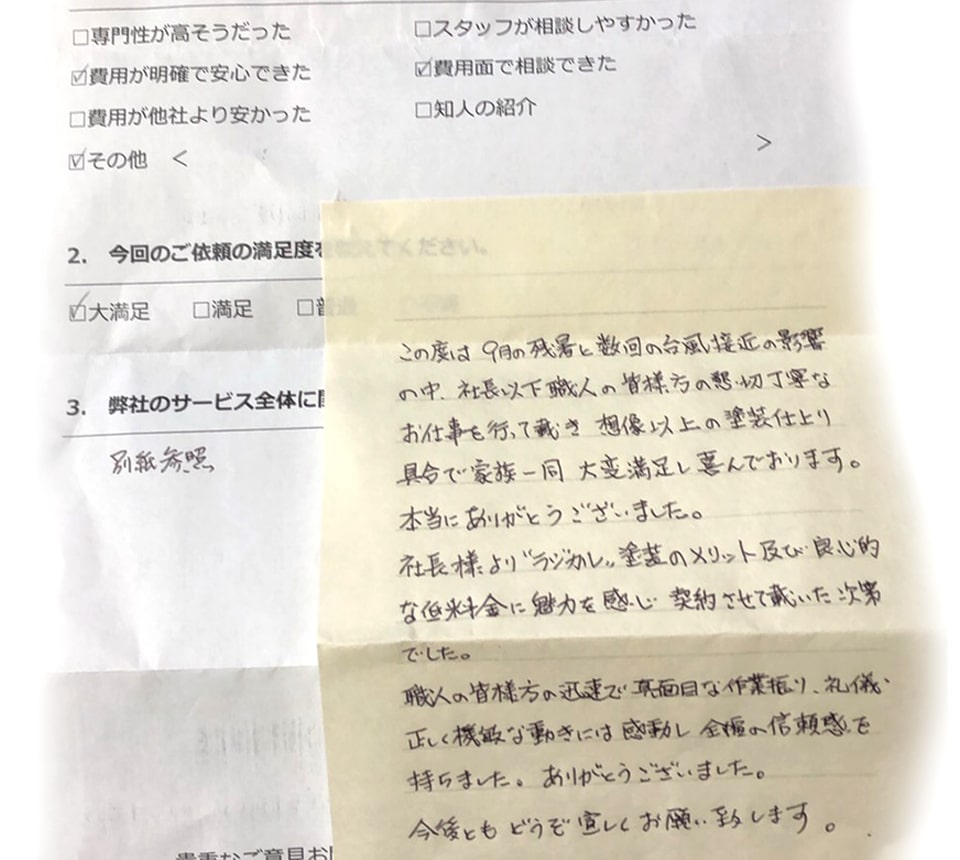 □専門性が高そうだった □スタッフが相談しやすかった
☑費用が明確で安心できた ☑費用面で相談できた
□費用が他社より安かった □知人の紹介
☑その他 < >
2. 今回のご依頼の満足度を教えてください。
☑大満足 □満足 □普通
3. 弊社のサービス全体に
別紙参照
この度は 9月の残暑と数回の台風接近の影響
の中、社長以下職人の皆様方の懇切丁寧な
お仕事を行って戴き 想像以上の塗装仕上り
具合で家族一同 大変満足し喜んでおります。
本当にありがとうございました。
社長様より“ラジカル„塗装のメリット及び良心的
な低料金に魅力を感じ 契約させて戴いた次第
でした。
職人の皆様方の迅速で真面目な作業振り、礼儀
正しく機敏な動きには感動し 全幅の信頼感を
持ちました。ありがとうございました。
今後とも どうぞ宜しくお願い致します。
貴重なご意見お